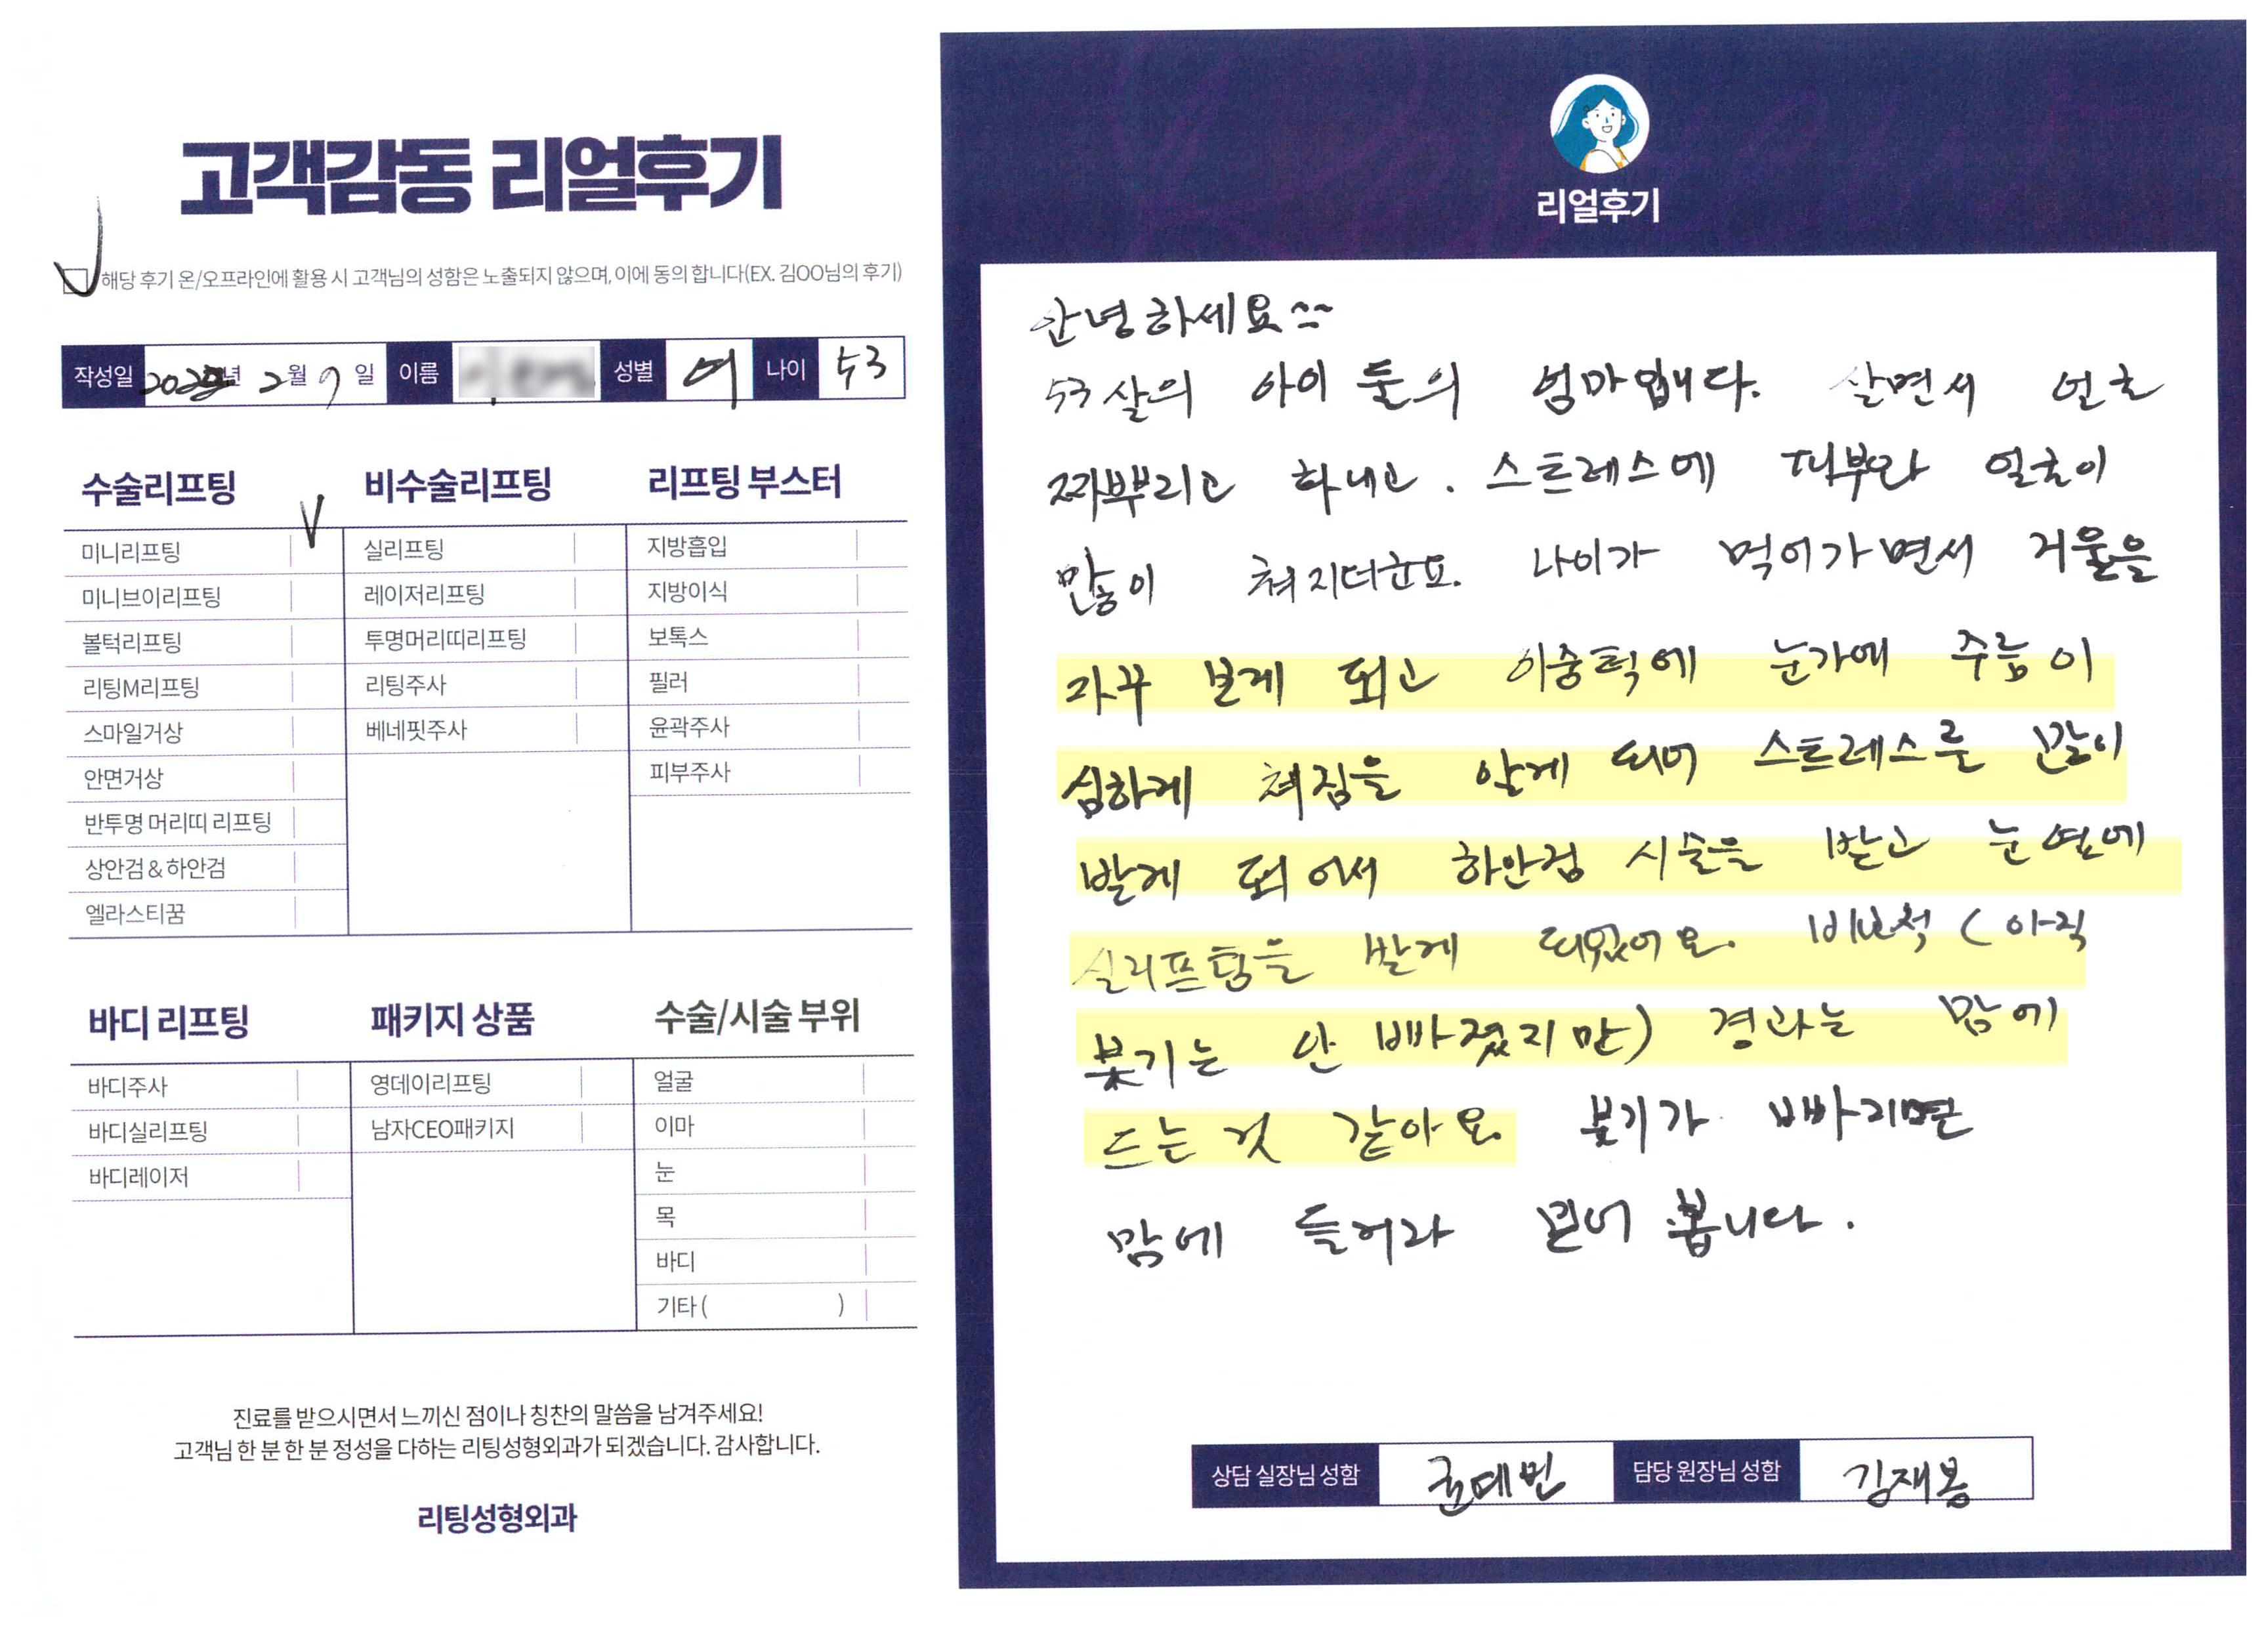 고객감동 리얼후기
해당 후기 온/오프라인에 활용 시 고객님의 성함은 노출되지 않으며, 이에 동의 합니다(EX. 김OO님의 후기)
작성일 년 2월 9일 이름 성별 여 나이 53
수술리프팅 비수술리프팅 리프팅 부스터
미니리프팅 실리프팅 지방흡입
미니브이리프팅 레이저리프팅 지방이식
볼턱리프팅 투명머리띠리프팅 보톡스
리팅M리프팅 리팅주사 필러
스마일거상 베네핏주사 윤곽주사
안면거상 피부주사
반투명 머리띠 리프팅
상안검&하안검
엘라스티꿈
바디 리프팅 패키지 상품 수술/시술 부위
바디주사 영데이리프팅 얼굴
바디실리프팅 남자CEO패키지 이마
바디레이저 눈
목
바디
기타 ( )
진료를 받으시면서 느끼신 점이나 칭찬의 말씀을 남겨주세요!
고객님 한 분 한 분 정성을 다하는 리팅성형외과가 되겠습니다. 감사합니다.
리팅성형외과
리얼후기
안녕하세요^^
53살의 아이 둘의 엄마입니다. 살면서 얼굴
찌뿌리고 화내고. 스트레스에 피부와 얼굴이
많이 쳐지더군요. 나이가 먹어가면서 거울을
자꾸 보게 되고 이중턱에 눈가에 주름이
심하게 쳐짐을 알게 되어 스트레스를 많이
받게 되어서 하안검 시술을 받고 눈 옆에
실리프팅을 받게 되었어요. 비교적 (아직
붓기는 안 빠졌지만) 결과는 맘에
드는 것 같아요. 붓기가 빠지면
맘에 들거라 믿어 봅니다.
상담 실장님 성함 담당 원장님 성함 김재봉